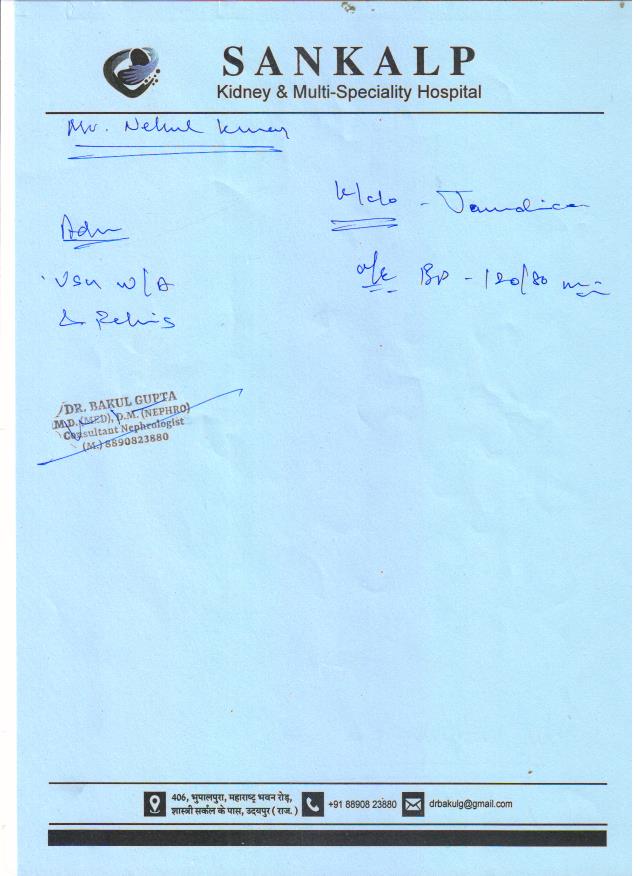 SANKALP
Kidney & Multi-Speciality Hospital
Mr. Nehul Kumar
K/c/o - Jaundice
Adv
O/E BP - 120/80 
USG W/A
& Pelvis
DR. BAKUL GUPTA
M.D. (MED), D.M. (NEPHRO)
Consultant Nephrologist
(M.) 8890823880
406, भुपालपुरा, महाराष्ट्र भवन रोड़,
शास्त्री सर्कल के पास, उदयपुर ( राज. )
+91 88908 23880
drbakulg@gmail.com